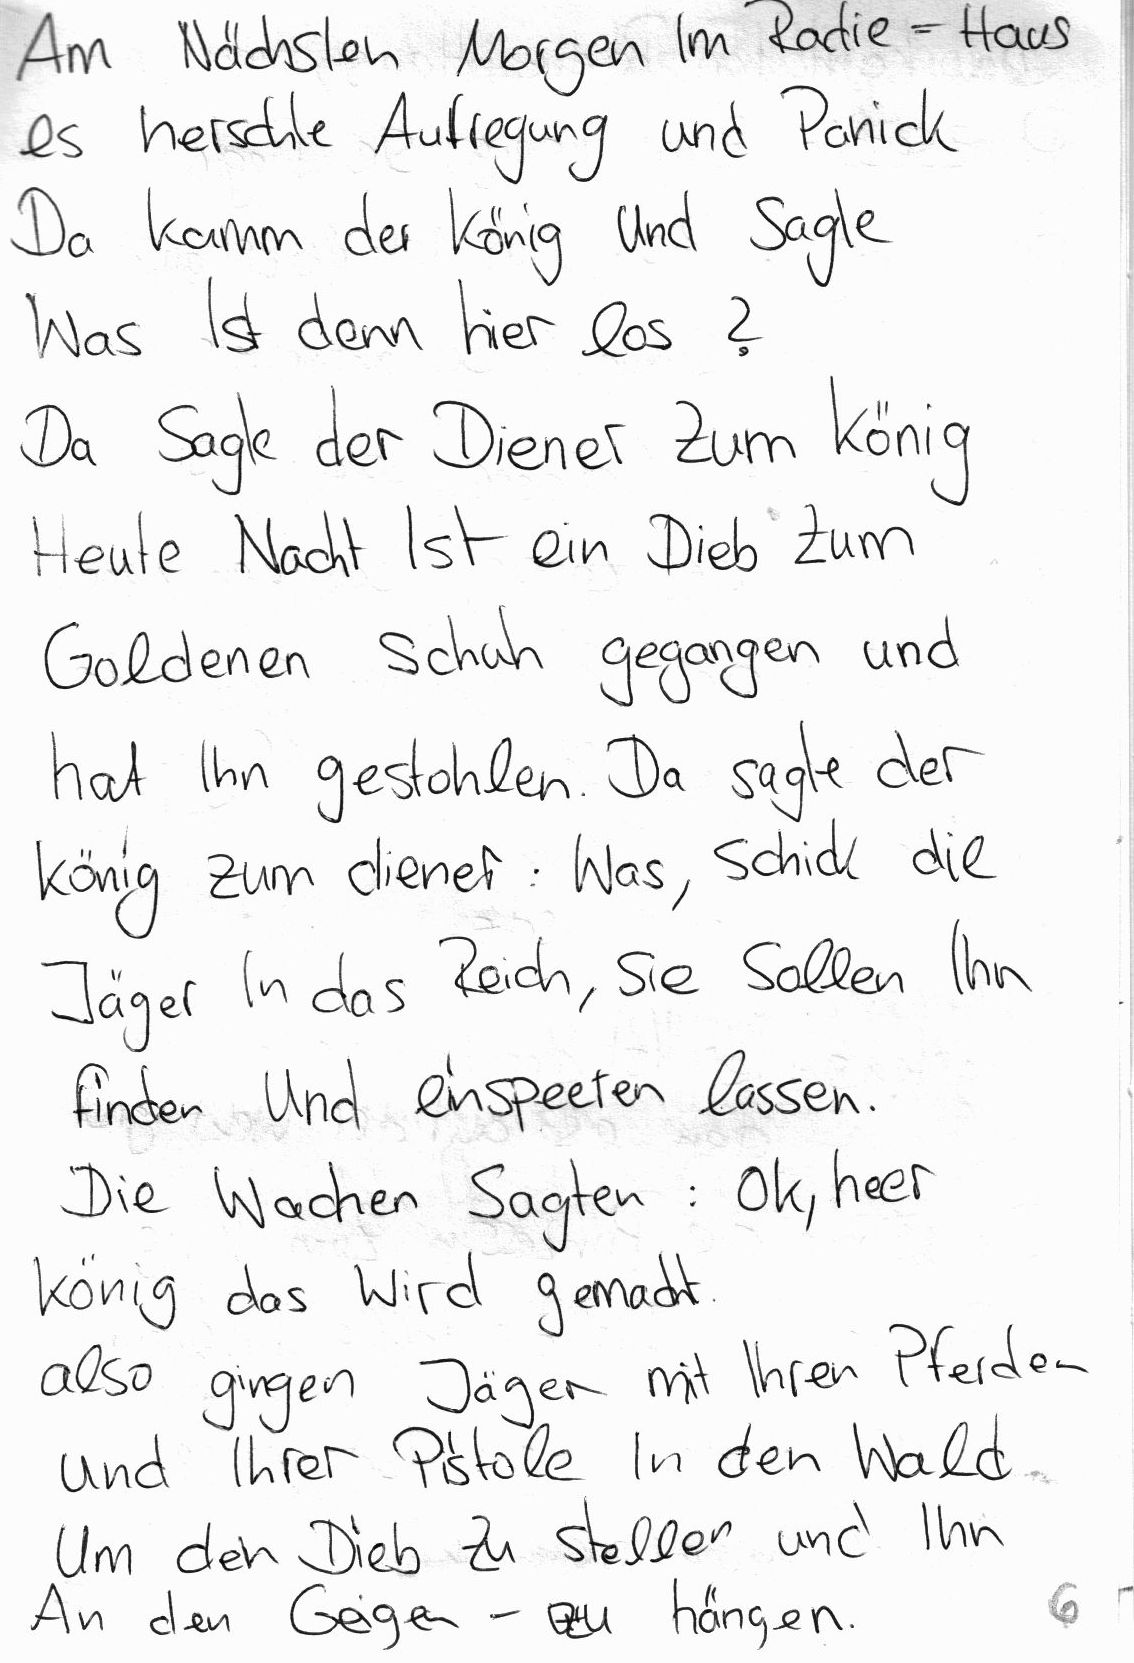 Am Nächsten Morgen Im Radie = Haus
es herschte Aufregung und Panick
Da kamm der König Und Sagte
Was Ist denn hier los ?
Da Sagte der Diener Zum König
Heute Nacht Ist ein Dieb zum
Goldenen Schuh gegangen und
hat Ihn gestohlen. Da sagte der
König zum diener : Was, Schick die
Jäger In das Reich, Sie Sollen Ihn
finden Und einspeeren lassen.
Die Wachen Sagten : Ok, heer
König das Wird gemacht.
also gingen Jäger mit Ihren Pferden
und Ihrer Pistole In den Wald
Um den Dieb zu stellen und Ihn
An den Geigen - zu hängen.
6